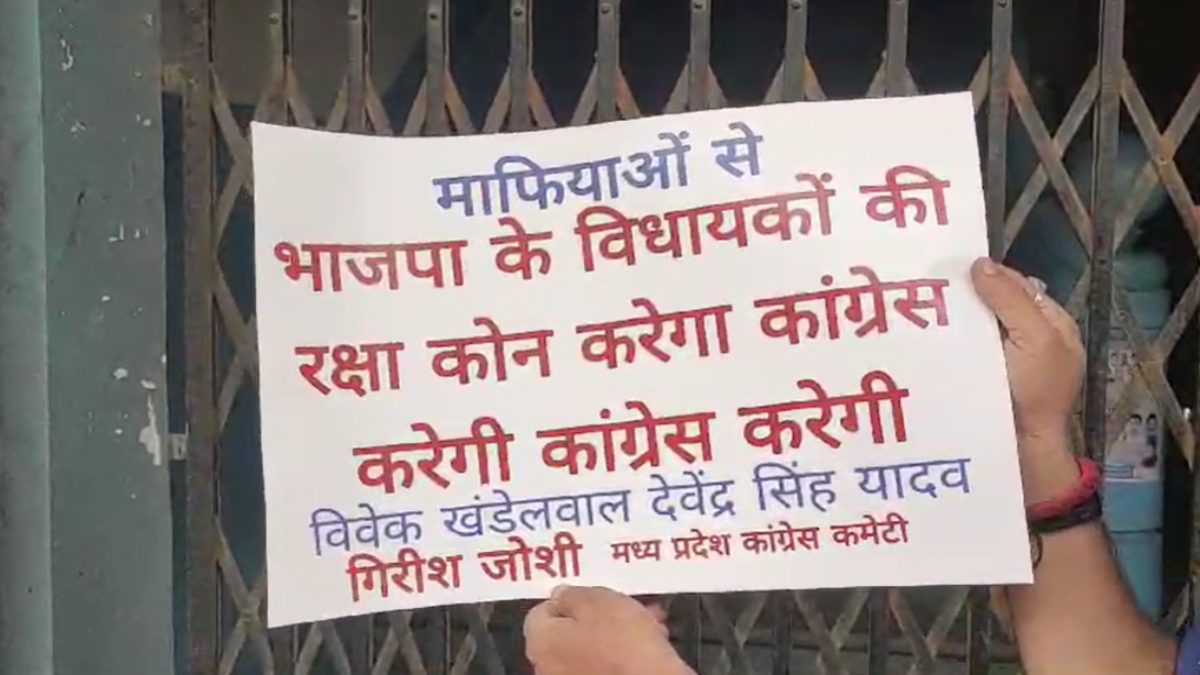 माफियाओं से
भाजपा के विधायकों की
रक्षा कोन करेगा कांग्रेस
करेगी कांग्रेस करेगी
विवेक खंडेलवाल देवेंद्र सिंह यादव
गिरीश जोशी मध्य प्रदेश कांग्रेस कमेटी